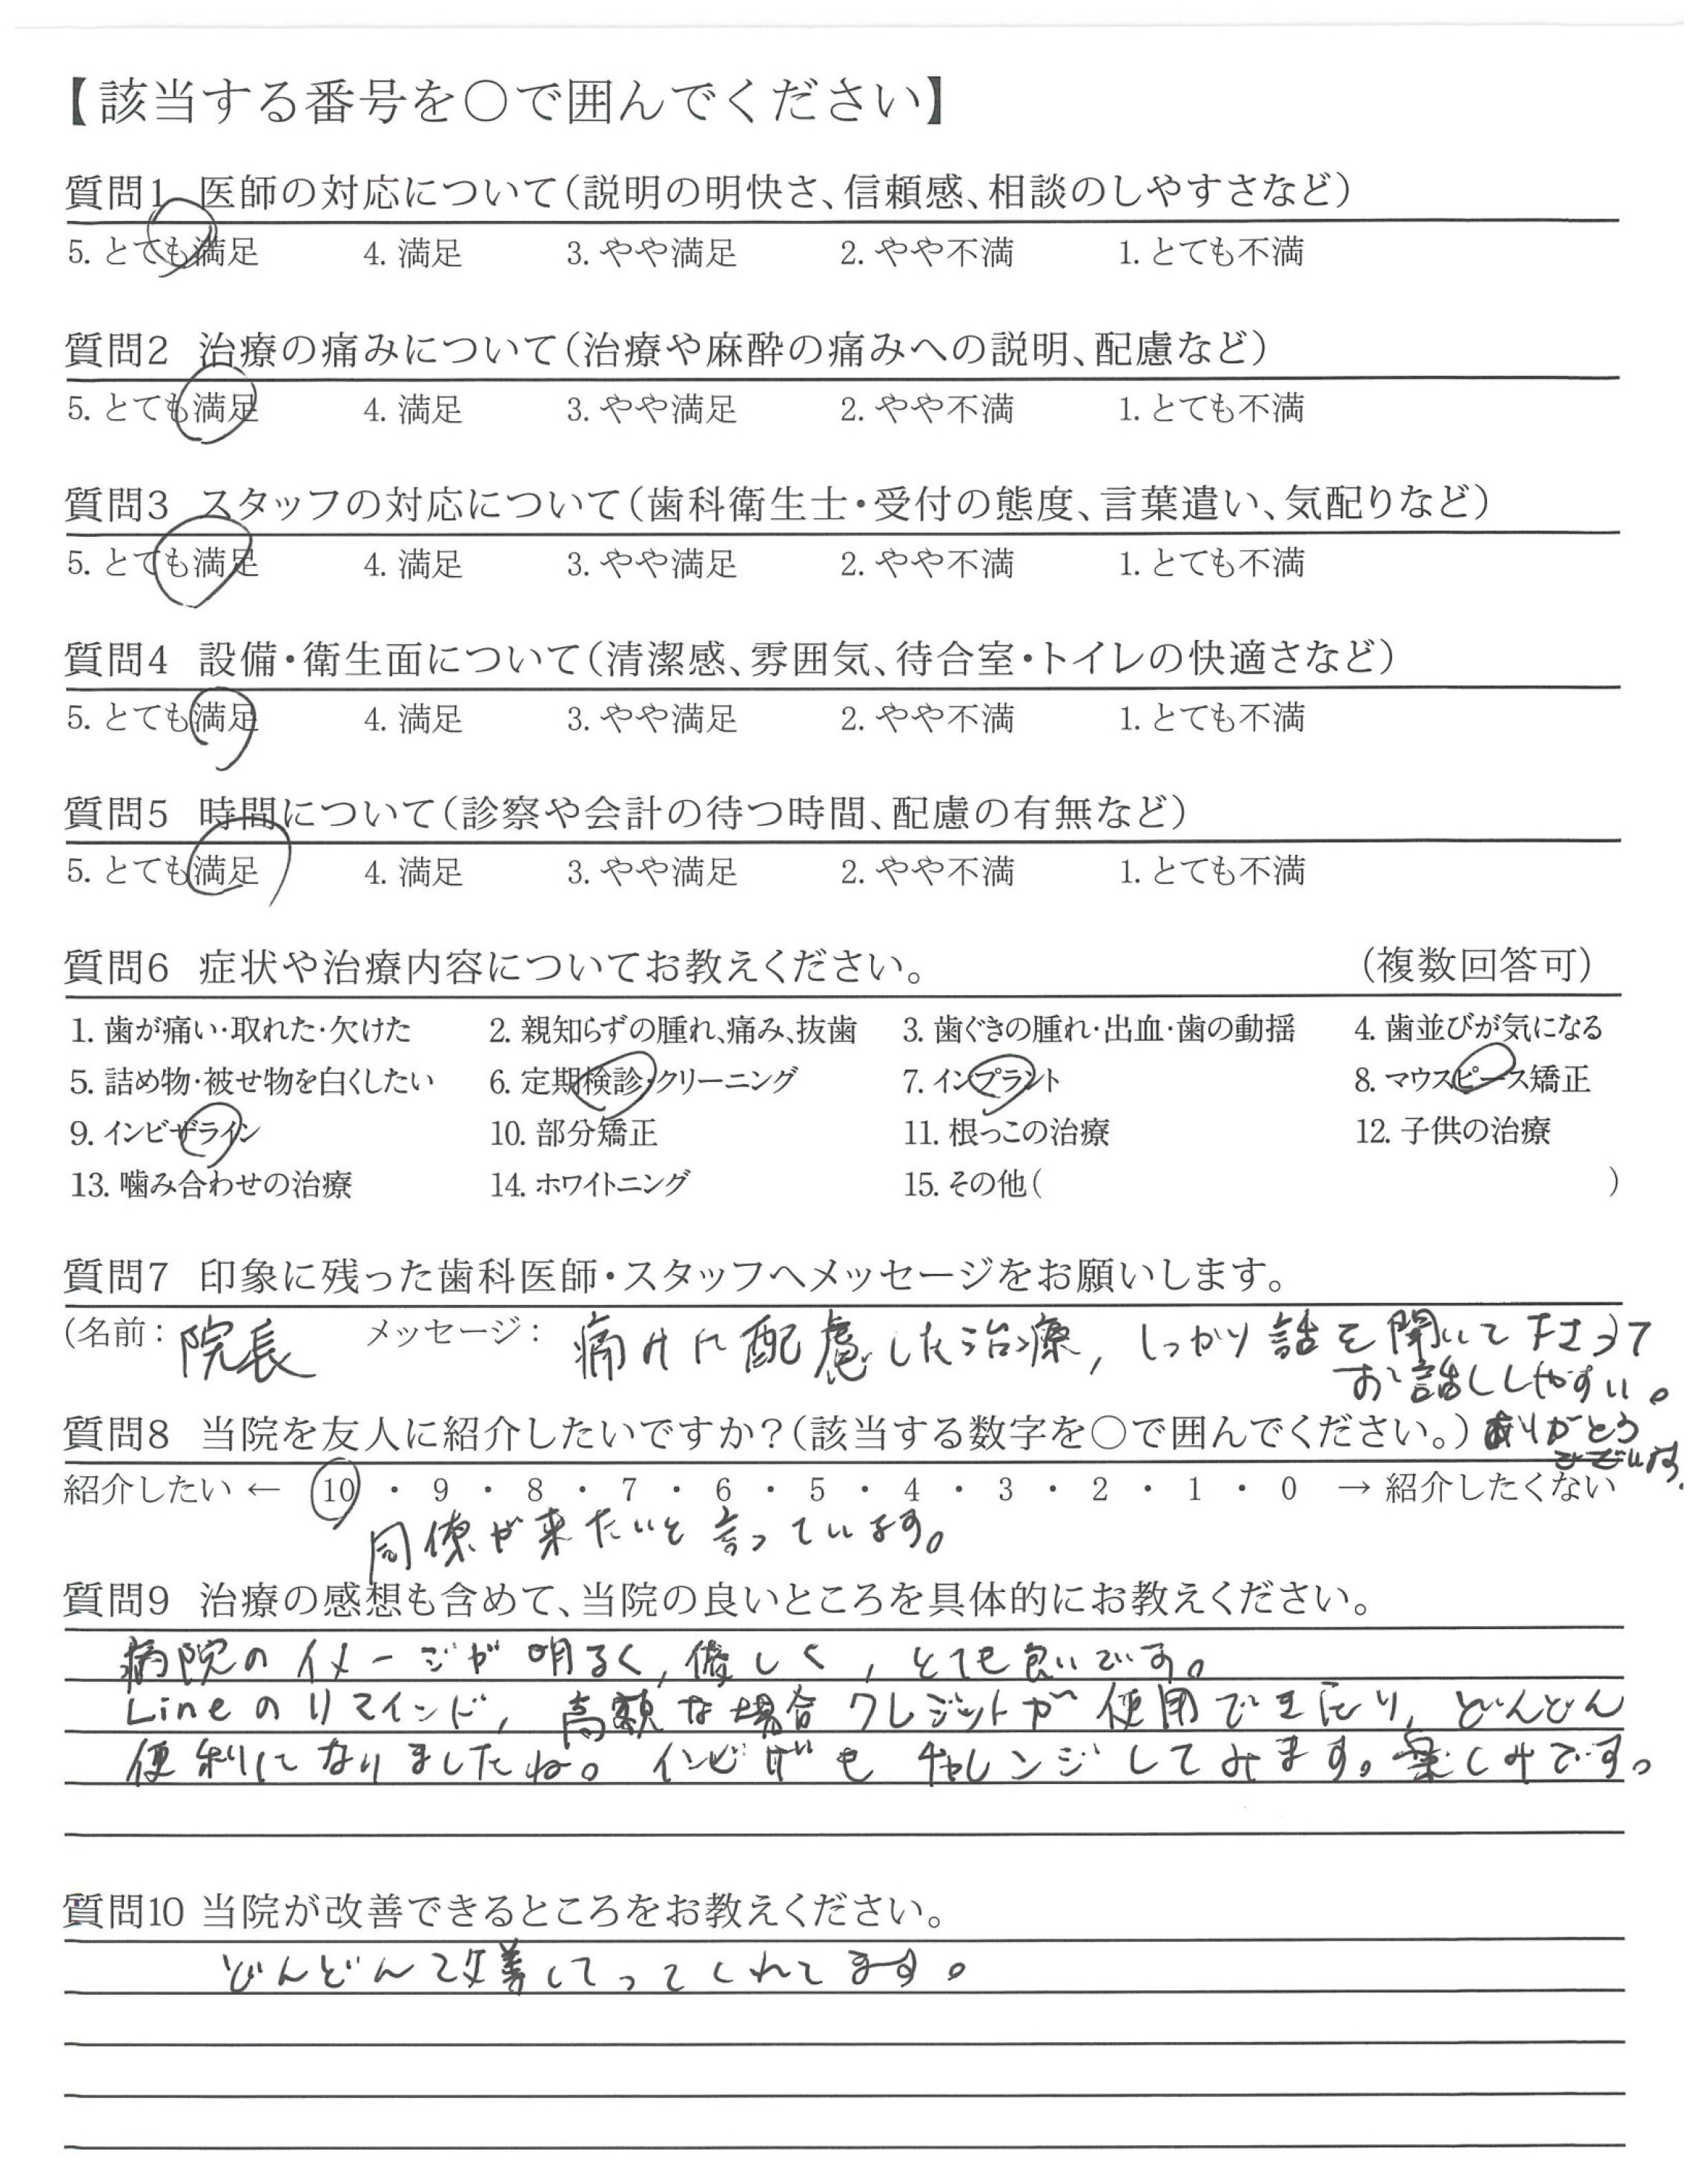 【該当する番号を○で囲んでください】
質問1 医師の対応について(説明の明快さ、信頼感、相談のしやすさなど)
5. とても満足 4. 満足 3. やや満足 2. やや不満 1. とても不満
質問2 治療の痛みについて(治療や麻酔の痛みへの説明、配慮など)
5. とても満足 4. 満足 3. やや満足 2. やや不満 1. とても不満
質問3 スタッフの対応について(歯科衛生士・受付の態度、言葉遣い、気配りなど)
5. とても満足 4. 満足 3. やや満足 2. やや不満 1. とても不満
質問4 設備・衛生面について(清潔感、雰囲気、待合室・トイレの快適さなど)
5. とても満足 4. 満足 3. やや満足 2. やや不満 1. とても不満
質問5 時間について(診察や会計の待つ時間、配慮の有無など)
5. とても満足 4. 満足 3. やや満足 2. やや不満 1. とても不満
質問6 症状や治療内容についてお教えください。 (複数回答可)
1. 歯が痛い・取れた・欠けた 2. 親知らずの腫れ、痛み、抜歯 3. 歯ぐきの腫れ・出血・歯の動揺 4. 歯並びが気になる
5. 詰め物・被せ物を白くしたい 6. 定期検診・クリーニング 7. インプラント 8. マウスピース矯正
9. インビザライン 10. 部分矯正 11. 根っこの治療 12. 子供の治療
13. 噛み合わせの治療 14. ホワイトニング 15. その他( )
質問7 印象に残った歯科医師・スタッフへメッセージをお願いします。
(名前: 院長 メッセージ: 痛みに配慮した治療, しっかり話を聞いて下さって
お話ししやすい。
質問8 当院を友人に紹介したいですか?(該当する数字を○で囲んでください。) ありがとう
ございます。
紹介したい ← 10 ・ 9 ・ 8 ・ 7 ・ 6 ・ 5 ・ 4 ・ 3 ・ 2 ・ 1 ・ 0 → 紹介したくない
同僚が来たいと言っています。
質問9 治療の感想も含めて、当院の良いところを具体的にお教えください。
病院のイメージが明るく, 優しく, とても良いです。
Lineのリマインド, 高額な場合クレジットが使用できたり, どんどん
便利になりましたね。インビザもチャレンジしてみます。楽しみです。
質問10 当院が改善できるところをお教えください。
どんどん改善してってくれてます。